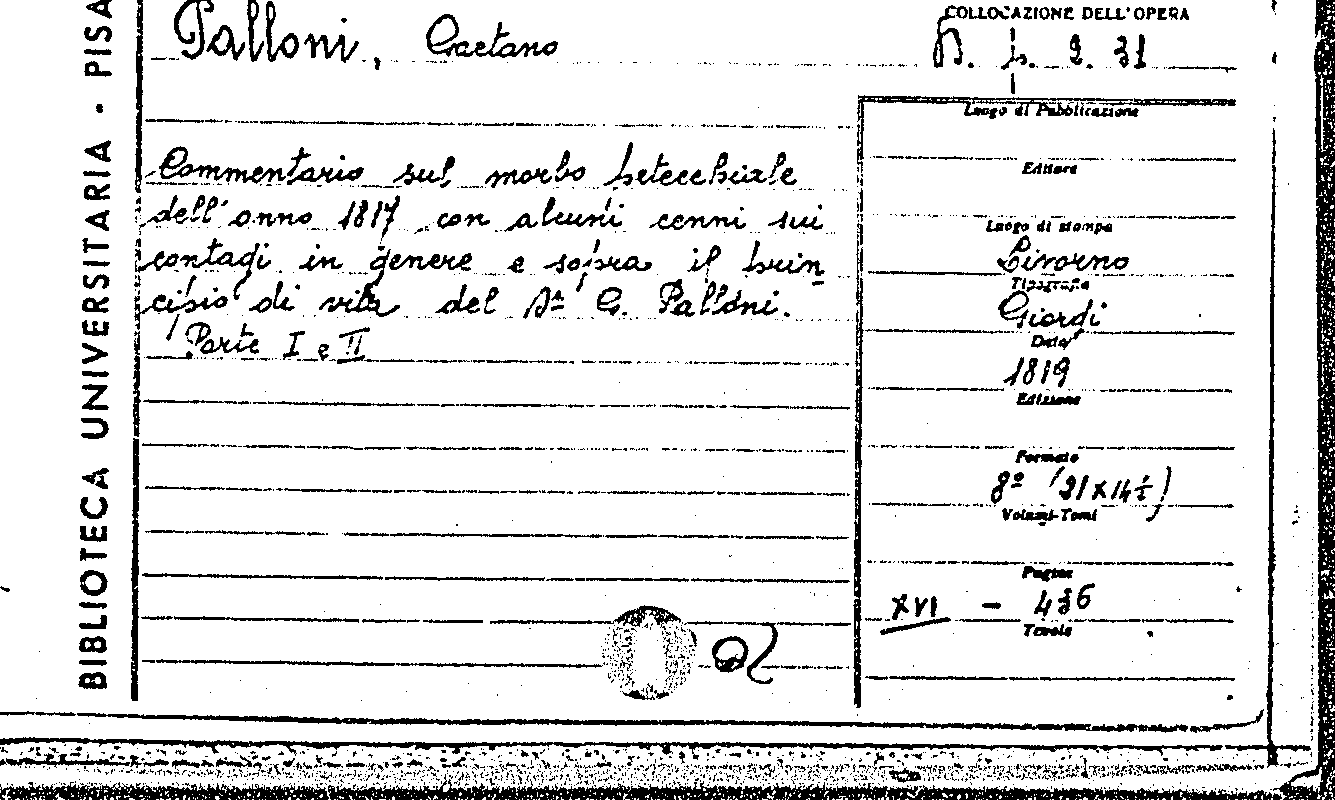 BIBLIOTECA UNIVERSITARIA - PISA
Palloni, Gaetano
COLLOCAZIONE DELL'OPERA
p. 2. 31
Commentario sul morbo petecchiale
dell'anno 1817 con alcuni cenni sui
contagi in genere e sopra il prin
cipio di vita del Dr G. Palloni.
Parte I e II
Luogo di Pubblicazione
Editore
Luogo di stampa
Livorno
Tipografia
Giordi
Data
1819
Edizione
Formato
8º (21x14½)
Volumi-Tomi
Pagine
XVI - 436
Tavole